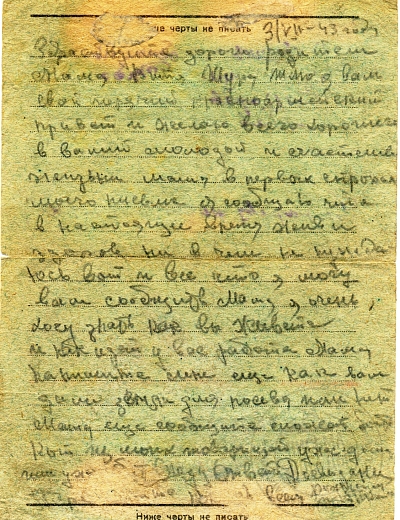 ше черты не писать 3/VII-43 году
Здраствуйте дорогие родители
Мама Витя Шура шлю я вам
свой горячий красноармейский
привет и желаю всего хорошего
в вашей молодой и счастливы
жизни мама в первых строках
моего письма я сообщаю что
в настоящее время жив и
здоров ни в чем не нужда
юсь вот и все что я могу
вам сообщить Мама я очень
хочу знать как вы живете
и как идет у вас работа Мама
напишите мне еще как вам
дали земли для посева или нет
Мама еще сообщите
привет
Ниже черты не писать